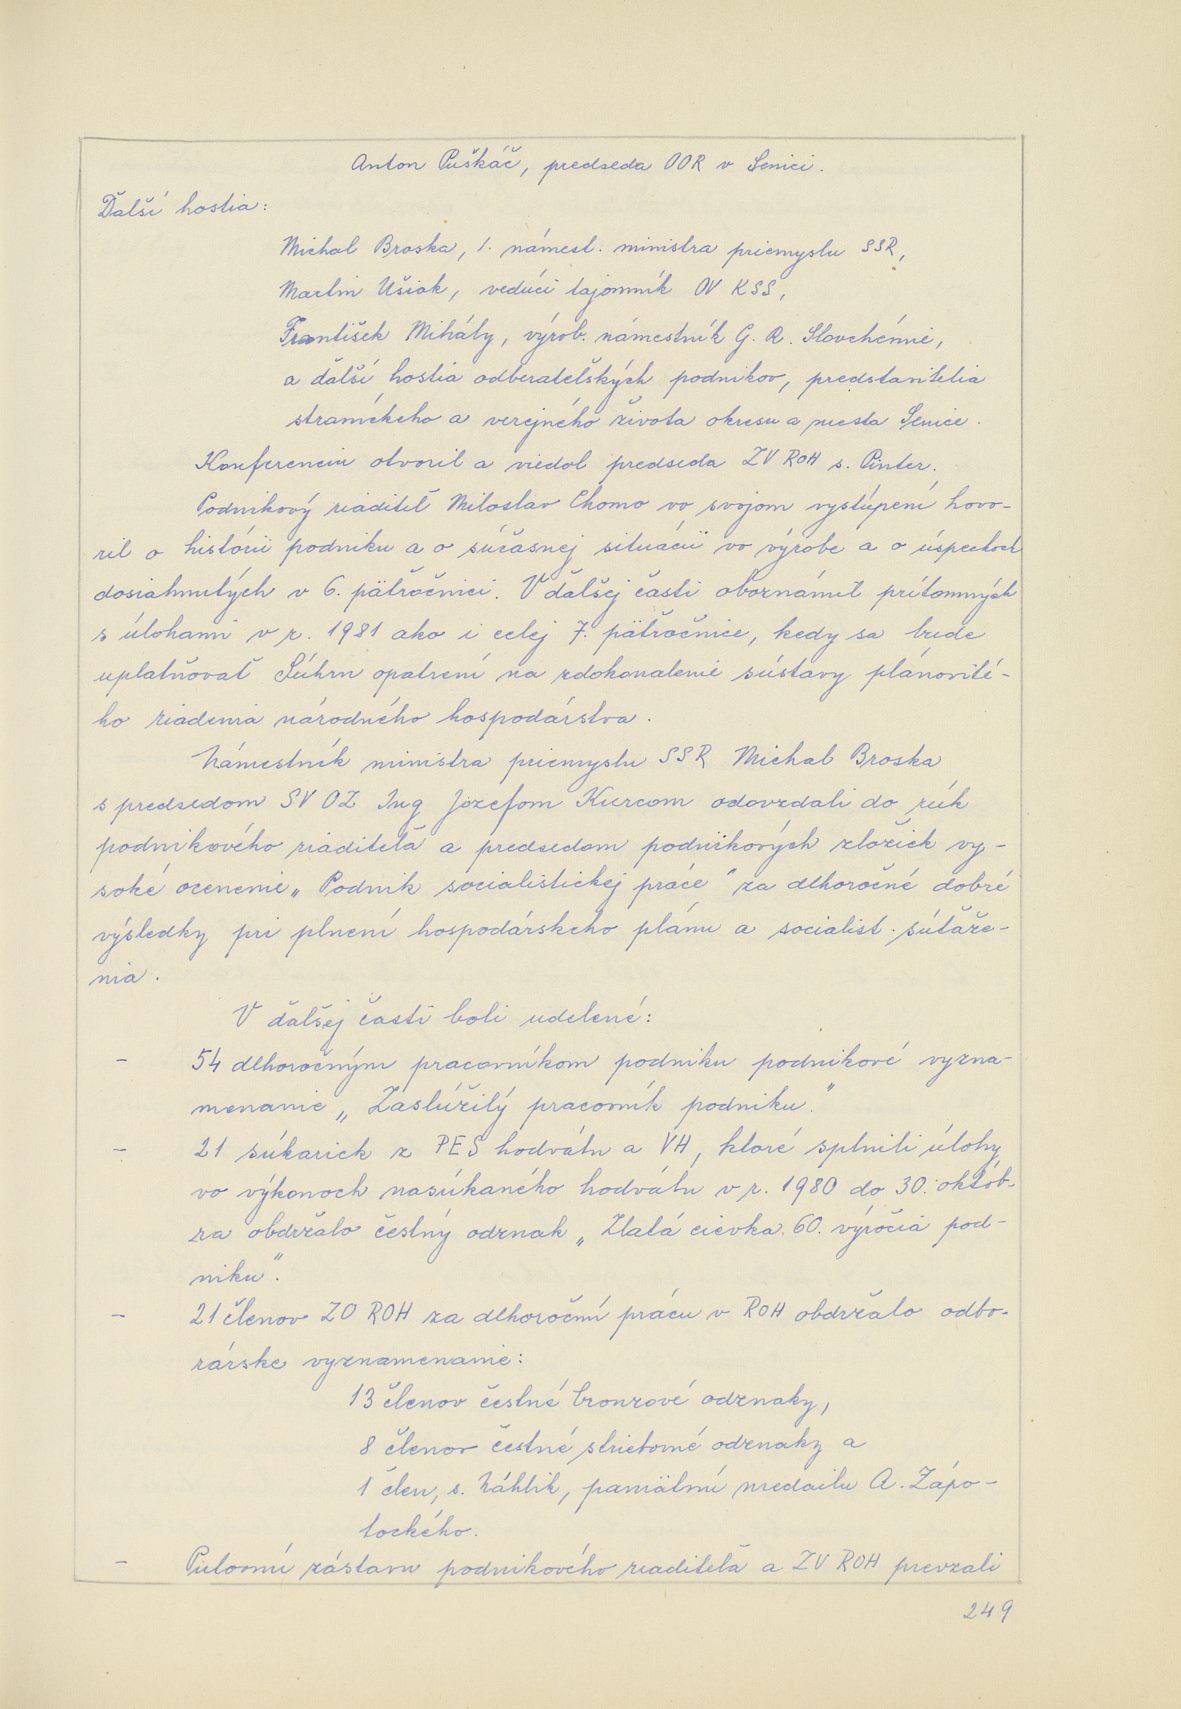 Anton Puškáč, predseda OOR v Senici.
Ďalší hostia:
Michal Broska, 1. námest. ministra priemyslu SSR,
Martin Ušiak, vedúci tajomník OV KSS,
František Mihály, výrob. námestník G. R. Slovchémie,
a ďalší hostia odberateľských podnikov, predstavitelia
straníckeho a verejného života okresu a mesta Senice.
Konferenciu otvoril a viedol predseda ZV ROH s. Pinter.
Podnikový riaditeľ Miloslav Chomo vo svojom vystúpení hovo-
ril o histórii podniku a o súčasnej situácii vo výrobe a o úspechoch
dosiahnutých v 6. päťročnici. V ďalšej časti oboznámil prítomných
s úlohami v r. 1981 ako i celej 7. päťročnice, kedy sa bude
uplatňovať Súhrn opatrení na zdokonalenie sústavy plánovité-
ho riadenia národného hospodárstva.
Námestník ministra priemyslu SSR Michal Broska
s predsedom SV OZ Ing Józefom Kurcom odovzdali do rúk
podnikového riaditeľa a predsedom podnikových zložiek vy-
soké ocenenie „Podnik socialistickej práce" za dlhoročné dobré
výsledky pri plnení hospodárskeho plánu a socialist. súťaže-
nia.
V ďalšej časti boli udelené:
- 54 dlhoročným pracovníkom podniku podnikové vyzna-
menanie „Zaslúžilý pracovník podniku."
- 21 súkariek z PES hodvábu a VH, ktoré splnili úlohy
vo výkonoch nasúkaného hodvábu v r. 1980 do 30. októb-
ra obdržalo čestný odznak „Zlatá cievka 60. výročia pod-
niku".
- 21 členov ZO ROH za dlhoročnú prácu v ROH obdržalo odbo-
rárske vyznamenanie:
13 členov čestné bronzové odznaky,
8 členov čestné strieborné odznaky a
1 člen, s. Náhlik, pamätnú medailu A. Zápo-
tockého.
- Putovnú zástavu podnikového riaditeľa a ZV ROH prevzali
249